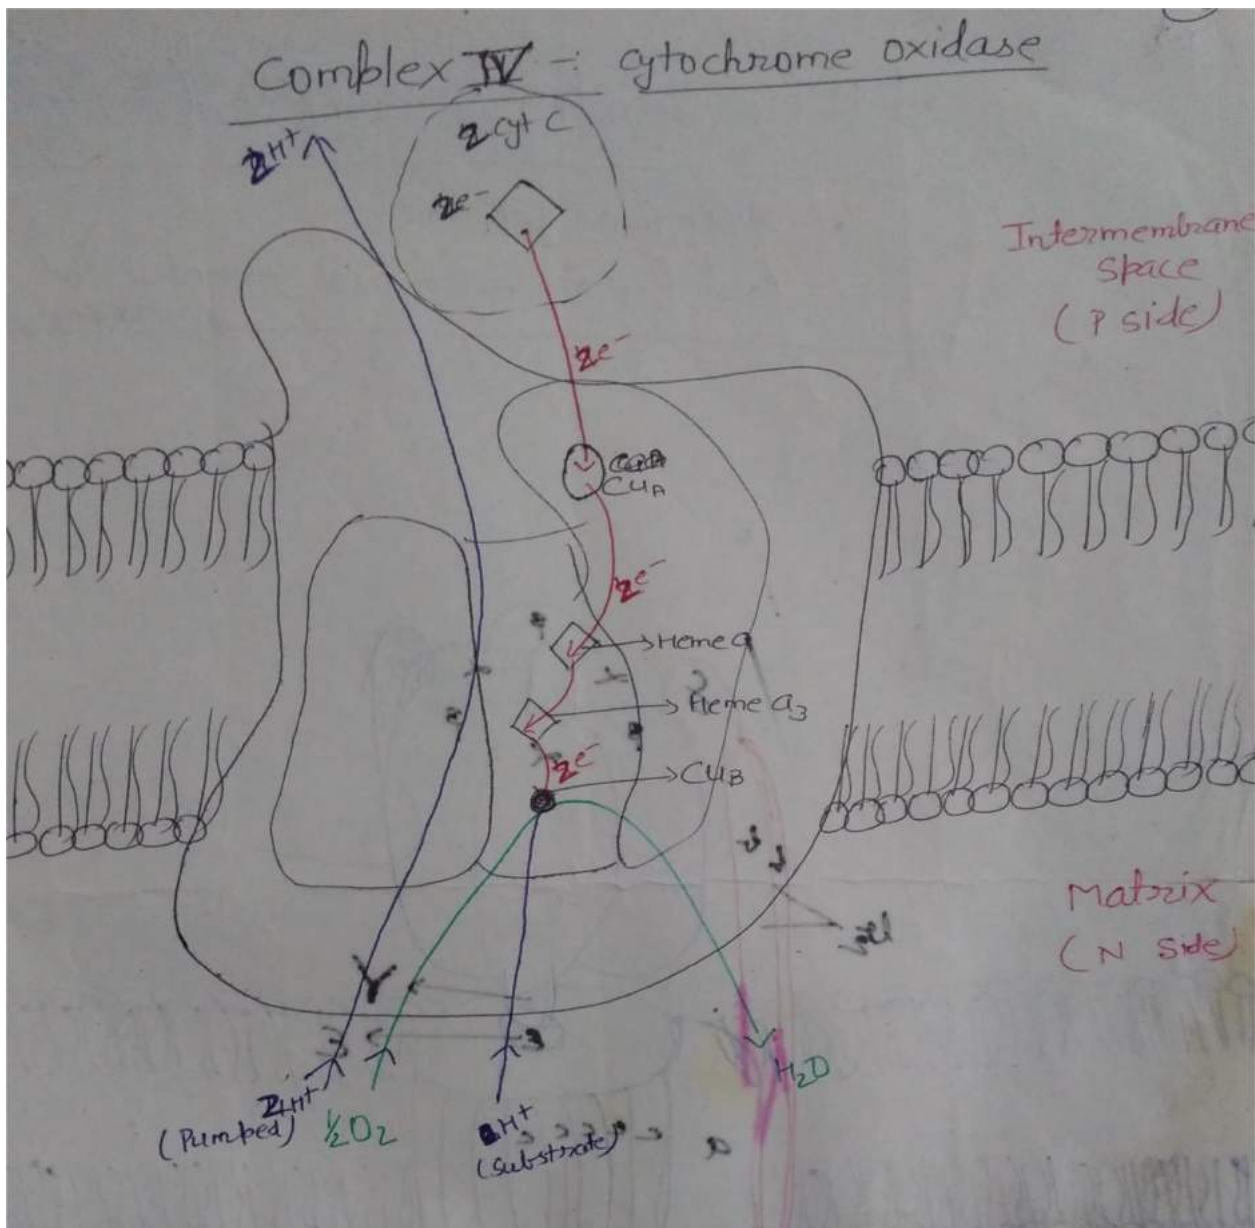 Complex IV - cytochrome oxidase
2H+
2 cyt c
2e-
Intermembrane
space
(P side)
2e-
CuA
2e-
Heme a
Heme a3
2e-
CuB
Matrix
(N side)
2H+
(Pumped)
½O2
H+
(substrate)
H2O